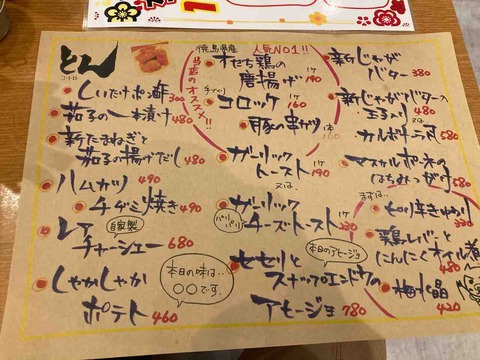 とん
しいたけポン酢 300
茄子の一本漬け 480
新たまねぎと
茄子の揚げだし 480
ハムカツ 490
チヂミ焼き 490
レア
自家製
チャーシュー 680
しゃかしゃか
ポテト 460
本日の味は…
〇〇です。
徳島県産
人気NO1!!
当店のオススメ!!
オセち鶏の
唐揚げ 1ケ 190
コロッケ 1ケ 160
豚の串カツ
ガーリック
トースト 1ケ 190
又は、
ガーリック
パリパリ
チーズトースト 1ケ 230
本日のアヒージョ
セセリと
スナップエンドウの
アヒージョ 780
新じゃが
バター 380
新じゃがバター入
玉子入り 又は
カルボナーラ風 580
マスカルポーネの
はちみつがけ 580
まずは…
330
鶏レバーと
にんにくオイル煮
480
梅水晶
420